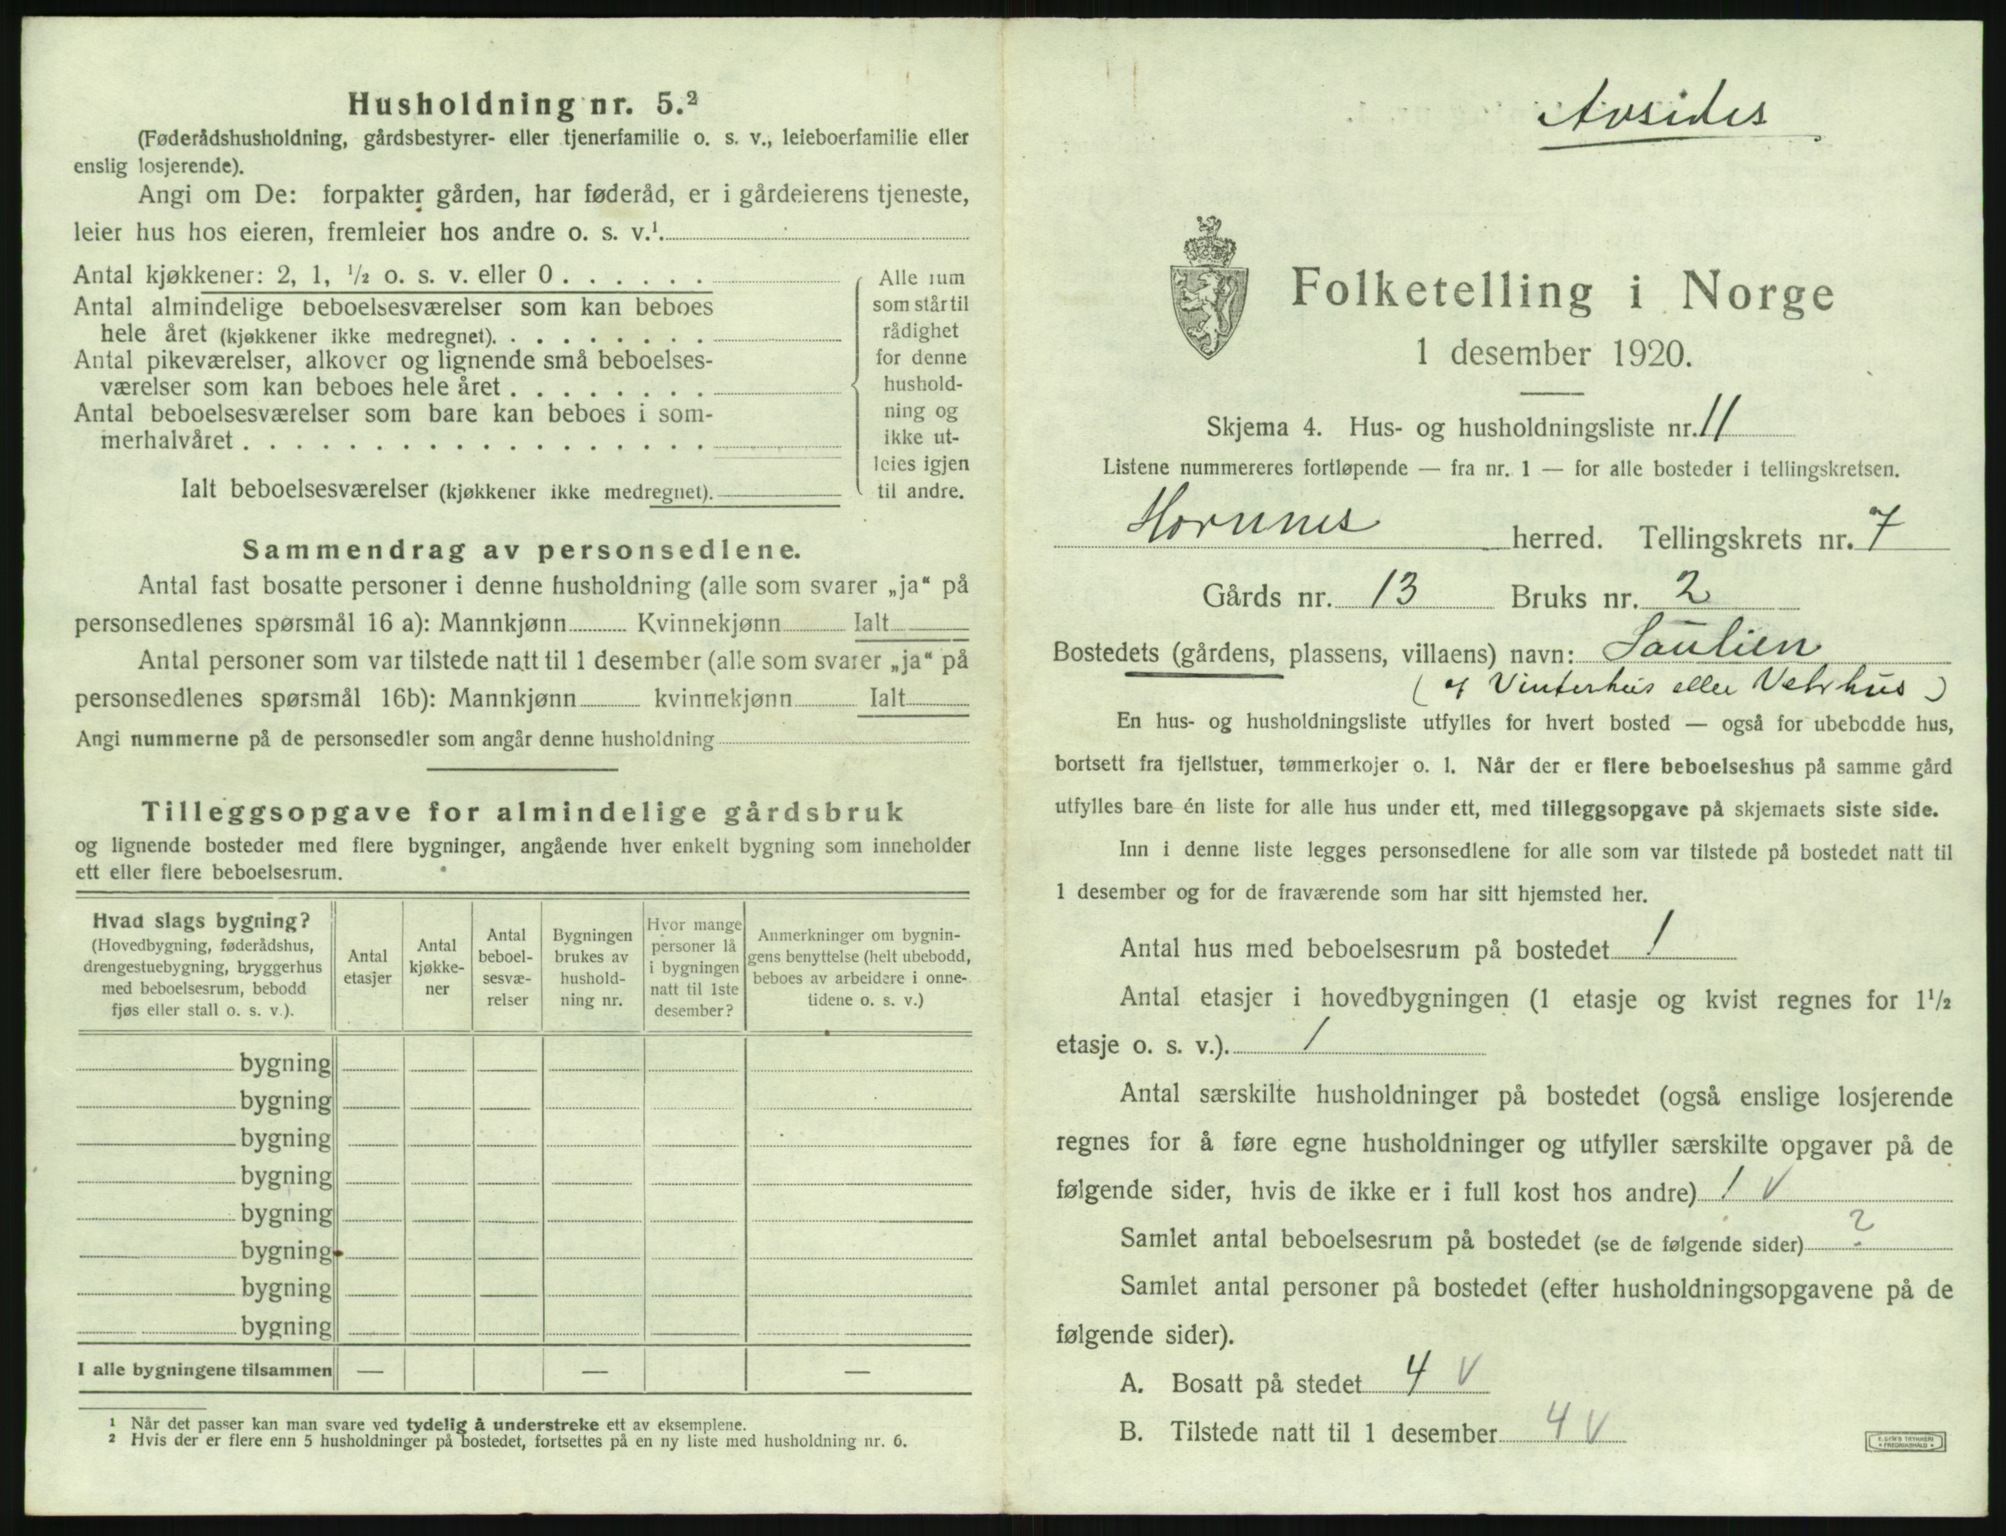 Husholdning nr. 5.²
(Føderådshusholdning, gårdsbestyrer- eller tjenerfamilie o. s. v., leieboerfamilie eller
enslig losjerende).
Angi om De: forpakter gården, har føderåd, er i gårdeierens tjeneste,
leier hus hos eieren, fremleier hos andre o. s. v.¹.
Antal kjøkkener: 2, 1, ½ o. s. v. eller 0 . . . . . .
Antal almindelige beboelsesværelser som kan beboes
hele året (kjøkkener ikke medregnet). . . . . . . . .
Antal pikeværelser, alkover og lignende små beboelses-
værelser som kan beboes hele året . . . . . . . .
Antal beboelsesværelser som bare kan beboes i som-
merhalvåret . . . . . . . . . . . . . . . . . .
Ialt beboelsesværelser (kjøkkener ikke medregnet).
Alle rum
som står til
rådighet
for denne
hushold-
ning og
ikke ut-
leies igjen
til andre.
Sammendrag av personsedlene.
Antal fast bosatte personer i denne husholdning (alle som svarer „ja“ på
personsedlenes spørsmål 16 a): Mannkjønn Kvinnekjønn Ialt
Antal personer som var tilstede natt til 1 desember (alle som svarer „ja“ på
personsedlenes spørsmål 16b): Mannkjønn kvinnekjønn Ialt
Angi nummerne på de personsedler som angår denne husholdning
Tilleggsopgave for almindelige gårdsbruk
og lignende bosteder med flere bygninger, angående hver enkelt bygning som inneholder
ett eller flere beboelsesrum.
Hvad slags bygning?
(Hovedbygning, føderådshus,
drengestuebygning, bryggerhus
med beboelsesrum, bebodd
fjøs eller stall o. s. v.).
Antal
etasjer
Antal
kjøkke-
ner
Antal
beboel-
sesvæ-
relser
Bygningen
brukes av
hushold-
ning nr.
Hvor mange
personer lå
i bygningen
natt til 1ste
desember?
Anmerkninger om bygnin-
gens benyttelse (helt ubebodd,
beboes av arbeidere i onne-
tidene o. s. v.)
bygning
bygning
bygning
bygning
bygning
bygning
bygning
bygning
I alle bygningene tilsammen — — —
¹ Når det passer kan man svare ved tydelig å understreke ett av eksemplene.
² Hvis der er flere enn 5 husholdninger på bostedet, fortsettes på en ny liste med husholdning nr. 6.
Avsides
Folketelling i Norge
1 desember 1920.
Skjema 4. Hus- og husholdningsliste nr. 11
Listene nummereres fortløpende — fra nr. 1 — for alle bosteder i tellingskretsen.
Hornnes herred. Tellingskrets nr. 7
Gårds nr. 13 Bruks nr. 2
Bostedets (gårdens, plassens, villaens) navn: Saulien
( Vinterhus eller Vetrhus )
En hus- og husholdningsliste utfylles for hvert bosted — også for ubebodde hus,
bortsett fra fjellstuer, tømmerkojer o. l. Når der er flere beboelseshus på samme gård
utfylles bare én liste for alle hus under ett, med tilleggsopgave på skjemaets siste side.
Inn i denne liste legges personsedlene for alle som var tilstede på bostedet natt til
1 desember og for de fraværende som har sitt hjemsted her.
Antal hus med beboelsesrum på bostedet 1
Antal etasjer i hovedbygningen (1 etasje og kvist regnes for 1½
etasje o. s. v.). 1
Antal særskilte husholdninger på bostedet (også enslige losjerende
regnes for å føre egne husholdninger og utfyller særskilte opgaver på de
følgende sider, hvis de ikke er i full kost hos andre) 1 V
Samlet antal beboelsesrum på bostedet (se de følgende sider) ?
Samlet antal personer på bostedet (efter husholdningsopgavene på de
følgende sider).
A. Bosatt på stedet 4 V
B. Tilstede natt til 1 desember 4 V